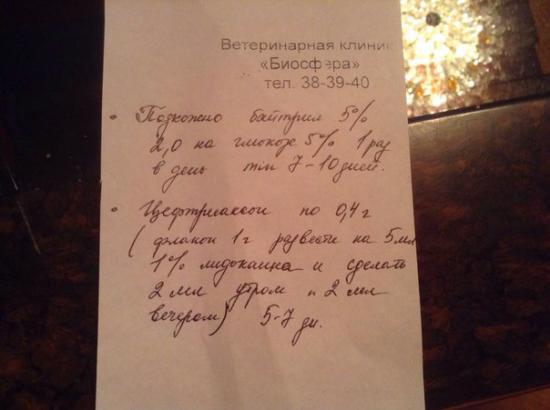 Ветеринарная клиник
«Биосфера»
тел. 38-39-40
• Подкожно байтрил 5%
2,0 на глюкозе 5% 1 раз
в день 7-10 дней.
• Цефтриаксон по 0,4 г
(флакон 1 г развести на 5 мл
1% лидокаина и сделать
2 мл утром и 2 мл
вечером) 5-7 дн.